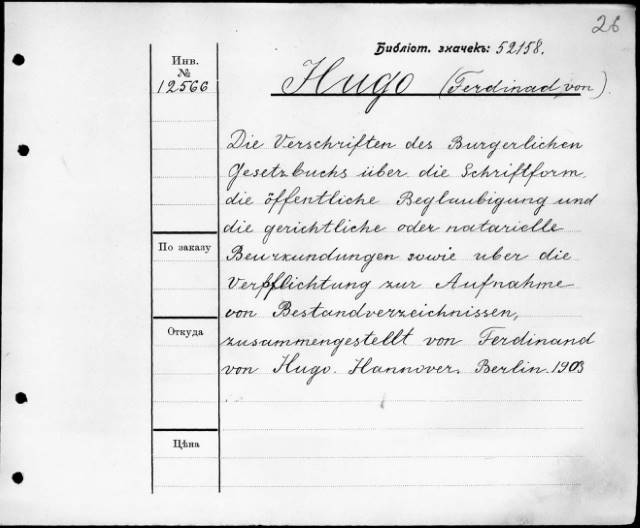 26
Библіот. значекъ: 52158.
Инв.
№
12566
Hugo (Ferdinad, von).
Die Verschriften des Burgerlichen
Gesetzbuchs über die Schriftform
die öffentliche Beglaubigung und
die gerichtliche oder natarielle
Beurkundungen sowie uber die
Verpflichtung zur Aufnahme
von Bestandverzeichnissen,
zusammengestellt von Ferdinand
von Hugo. Hannover. Berlin. 1903
По заказу
Откуда
Цѣна